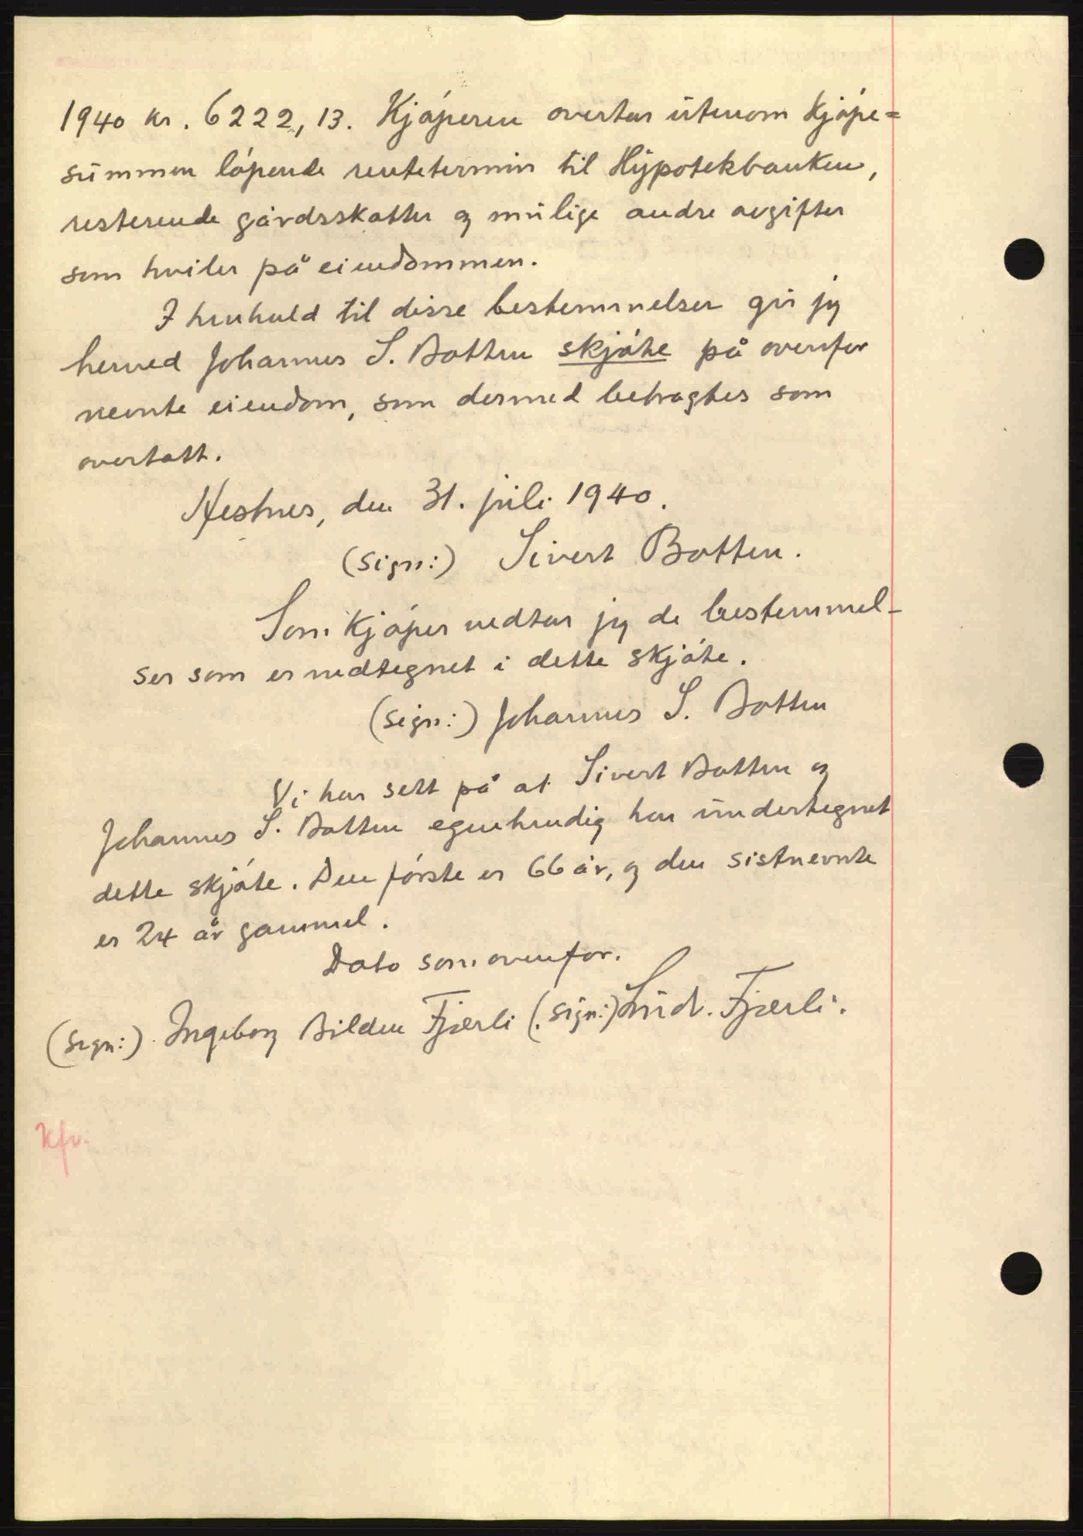 1940 kr. 6222,13. Kjóperen overtar utenom kjópe=
summen lópende rentetermin til Hypotekbanken,
resterende gårdsskatter og mulige andre avgifter
som hviler på eiendommen.
I henhold til disse bestemmelser gir jeg
herved Johannes S. Botten skjóte på ovenfor
nevnte eiendom, som dermed betragtes som
overtatt.
Hestnes, den 31. juli 1940.
(Sign:) Sivert Botten.
Som kjóper vedtar jeg de bestemmel-
ser som er nedtegnet i dette skjóte.
(Sign:) Johannes S. Botten
Vi har sett på at Sivert Botten og
Johannes S. Botten egenhendig har undertegnet
dette skjóte. Den fórste er 66 år, og den sistnevnte
er 24 år gammel.
Dato som ovenfor.
(Sign:) Ingeborg Bilden Fjærli (Sign:) Ludv. Fjærli.
Kfr.